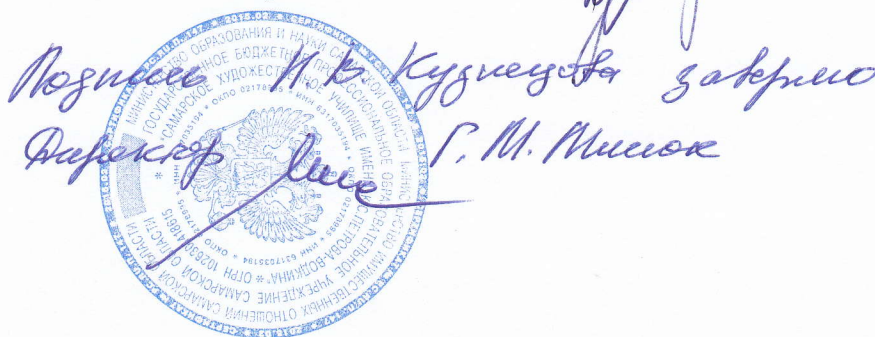 Подпись И. В. Кузнецова заверяю
Директор Г. М.
МИНИСТЕРСТВО ОБРАЗОВАНИЯ И НАУКИ САМАРСКОЙ ОБЛАСТИ МИНИСТЕРСТВО ИМУЩЕСТВЕННЫХ ОТНОШЕНИЙ САМАРСКОЙ ОБЛАСТИ
ГОСУДАРСТВЕННОЕ БЮДЖЕТНОЕ ПРОФЕССИОНАЛЬНОЕ ОБРАЗОВАТЕЛЬНОЕ УЧРЕЖДЕНИЕ САМАРСКОЙ ОБЛАСТИ
"САМАРСКОЕ ХУДОЖЕСТВЕННОЕ УЧИЛИЩЕ ИМЕНИ К.С.ПЕТРОВА-ВОДКИНА" * ОГРН
* ОКПО * ИНН 6317035194